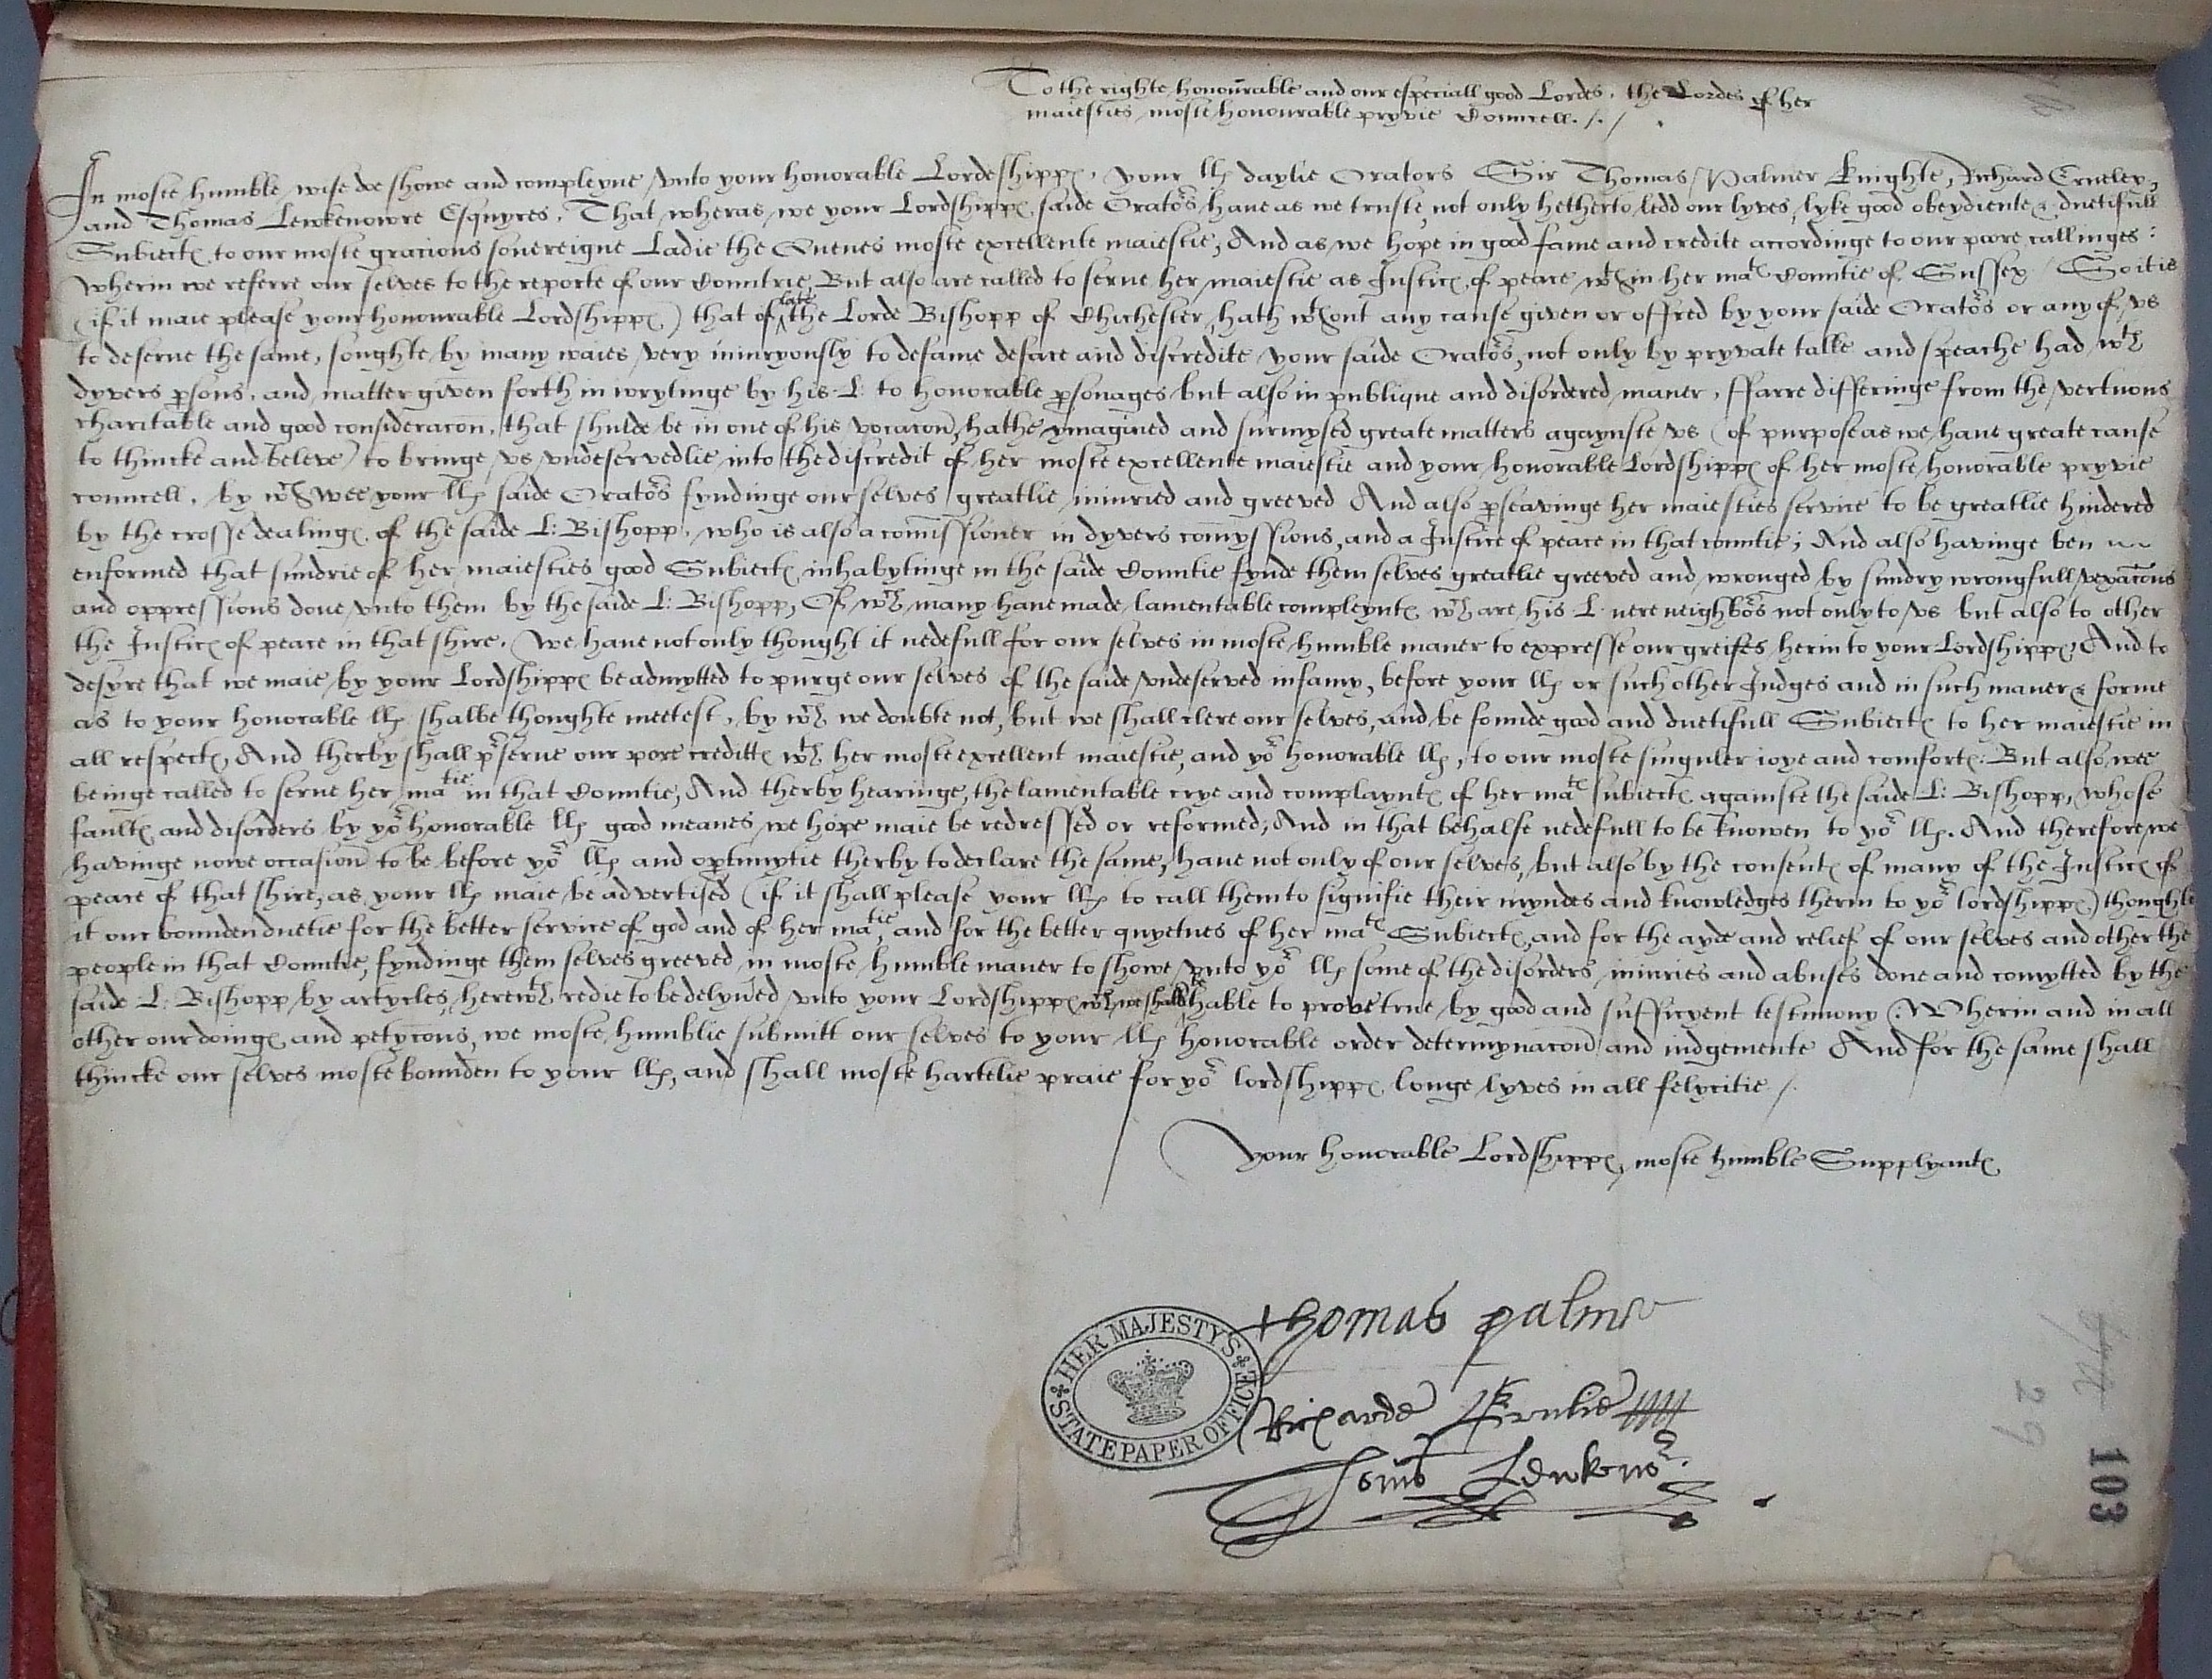 To the righte honourable and our especiall good Lordes, the Lordes of her
maiesties moste honourable pryvie Councell ./. /
In moste humble wise doe showe and compleyne vnto your honorable Lordeshippes, your llps daylie Orators Sir Thomas Palmer Knighte, Richard Erneley,
and Thomas Lewkenowre Esquyres, That wheras we your Lordshippes saide Orators haue as we truste, not only hetherto ledd our lyves, lyke good obeydiente & duetifull
Subiectes to our moste gracious souereigne Ladie the Quenes moste excellente maiestie, And as we hope in good fame and credite accordinge to our poore callinges :
wherin we referre our selves to the reporte of our Countrie, But also are called to serue her maiestie as Justices of peace wthin her mats Countie of Sussex / So it is
(if it maie please your honourable Lordshippes) that of late the Lorde Bishopp of Chichester, hath wthout any cause given or offred by your saide Orators or any of vs
to deserue the same, soughte by many waies very iniuryously to defame deface and discredite your saide Orators, not only by pryvate talke and speache had wth
dyvers psons, and matter given forth in wrytinge by his L: to honorable psonages but also in publique and disordered maner, ffarre differinge from the vertuous
charitable and good consideracon, that shulde be in one of his vocacon, hathe ymagined and surmysed greate matters agaynste vs (of purpose as we haue greate cause
to thincke and beleve) to bringe vs vndeservedlie into the discredit of her moste excellente maiestie and your honorable Lordshippes of her moste honorable pryvie
councell, by wch wee your llps saide Orators fyndinge our selves greatlie iniuried and greeved And also pseavinge her maiesties service to be greatlie hindered
by the crosse dealinges of the saide L: Bishopp, who is also a comissioner in dyvers comyssions, and a Justice of peace in that countie; And also havinge ben
enformed that sundrie of her maiesties good Subiectes inhabytinge in the saide Countie fynde them selves greatlie greeved and wronged by sundry wrongfull vexacons
and oppressions done vnto them by the saide L: Bishopp, Of wch many haue made lamentable compleyntes wch are his L. nere neighbors not only to vs but also to other
the Justices of peace in that shire. We haue not only thought it nedefull for our selves in moste humble maner to expresse our greifes herin to your Lordshippes, And to
desyre that we maie by your Lordshippes be admytted to purge our selves of the saide vndeserved infamy, before your llps or such other Judges and in such maner & forme
as to your honorable llps shalbe thoughte meetest, by wch we doubte not, but we shall clere our selves, and be founde good and duetifull Subiectes to her maiestie in
all respectes, And therby shall pserue our pore creditte wth her moste excellent maiestie, and yor honorable llps, to our moste singuler ioye and comforte: But also wee
beinge called to serue her matie in that Countie, And therby hearinge the lamentable crye and complayntes of her mats subiectes againste the saide L: Bishopp, whose
faultes and disorders by yor honorable llps good meanes we hope maie be redressed or reformed; And in that behalfe nedefull to be knowen to yor llps. And therefore we
havinge nowe occasion to be before yor llps and optunytie therby to declare the same, haue not only of our selves, but also by the consentes of many of the Justices of
peace of that shire, as your llps maie be advertised (if it shall please your llps to call them to signifie their myndes and knowledges therin to yor lordshippes) thoughte
it our bounden duetie for the better service of god and of her matie, and for the better quyetnes of her mats Subiectes, and for the ayde and relief of our selves and other the
people in that Countie, fyndinge them selves greeved, in moste humble maner to showe vnto yor llps some of the disorders iniuries and abuses done and comytted by the
saide L: Bishopp by artycles, herewth redie to be delyued vnto your Lordshippes wch we shalbe hable to prove true by good and sufficyent testimony. Wherin and in all
other our doinges and petycons, we moste humblie submitt our selves to your llps honorable order determynacon and iudgemente And for the same shall
thincke our selves moste bounden to your llps, and shall moste hartelie praie for yor lordshippes longe lyves in all felycitie /.
Your honorable Lordshippes, moste humble Supplyantes
Thomas palmer
Richarde Ernlie
Thoms Lewkenor
HER MAJESTY'S STATE PAPER OFFICE
29
103